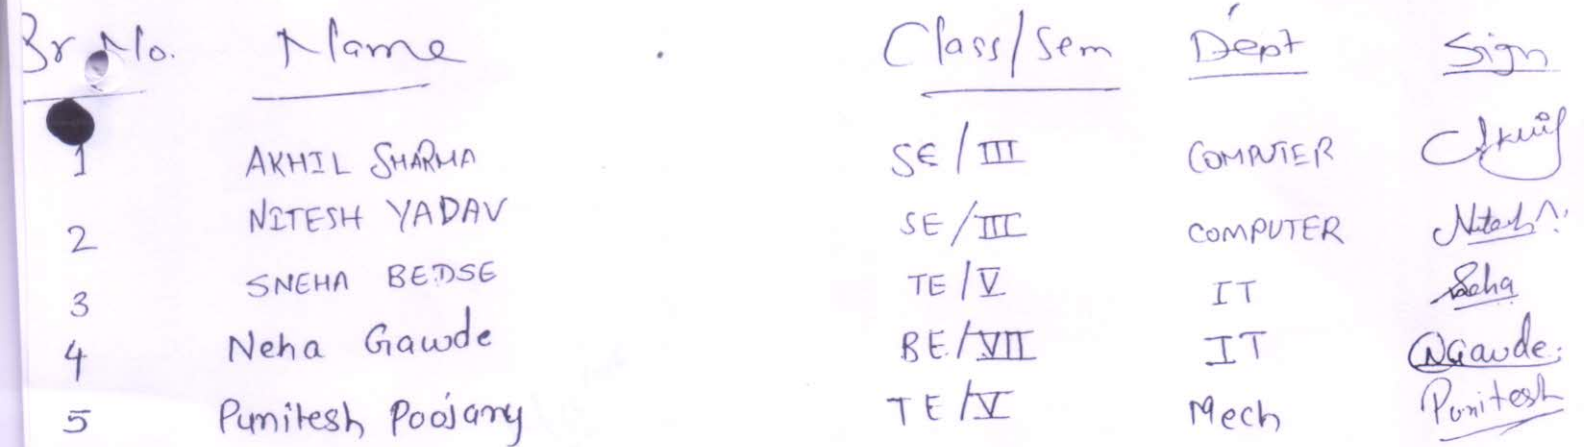 Sr No. Name Class/Sem Dept Sign
1 AKHIL SHARMA SE/III COMPUTER
2 NITESH YADAV SE/III COMPUTER Nitesh
3 SNEHA BEDSE TE/V IT
4 Neha Gawde BE/VII IT NGawde.
5 Punitesh Poojary TE/V Mech Punitesh